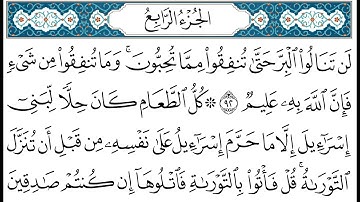 الجزء الرابع
لَن تَنَالُوا۟ ٱلْبِرَّ حَتَّىٰ تُنفِقُوا۟ مِمَّا تُحِبُّونَ ۚ وَمَا تُنفِقُوا۟ مِن شَىْءٍ
فَإِنَّ ٱللَّهَ بِهِۦ عَلِيمٌ ٩٢ ۞ كُلُّ ٱلطَّعَامِ كَانَ حِلًّا لِّبَنِىٓ
إِسْرَٰٓءِيلَ إِلَّا مَا حَرَّمَ إِسْرَٰٓءِيلُ عَلَىٰ نَفْسِهِۦ مِن قَبْلِ أَن تُنَزَّلَ
ٱلتَّوْرَىٰةُ ۗ قُلْ فَأْتُوا۟ بِٱلتَّوْرَىٰةِ فَٱتْلُوهَآ إِن كُنتُمْ صَٰدِقِينَ